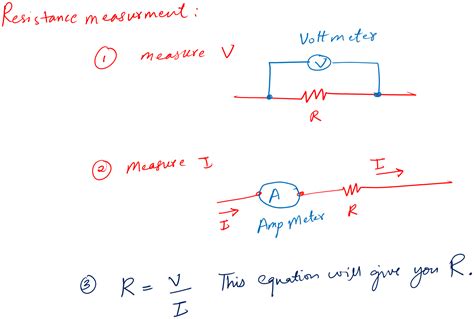 Resistance measurment :
① measure V
Voltmeter
V
R
② Measure I
I
A
I
Ampmeter
R
③ R = V/I This equation will give you R.